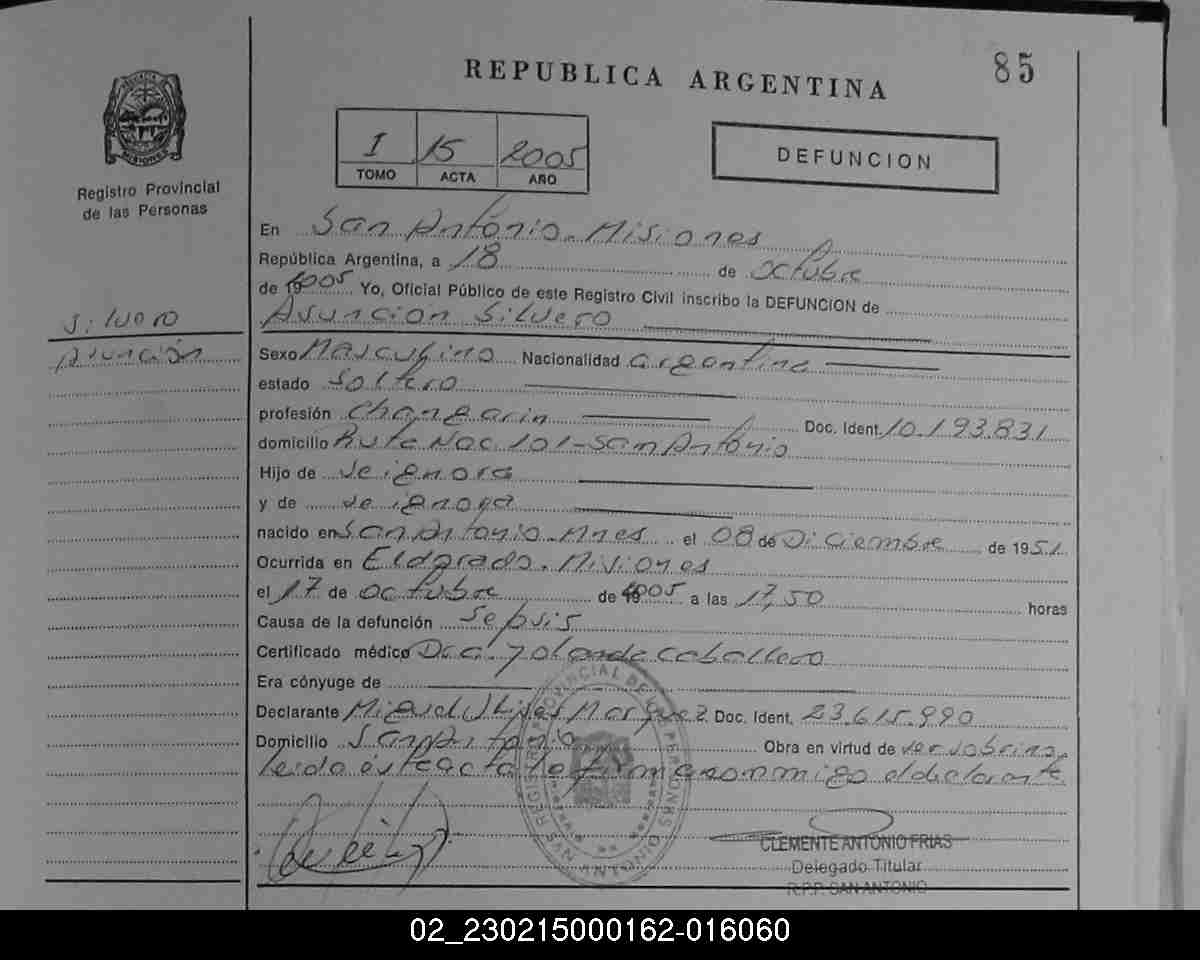 REPUBLICA ARGENTINA
85
MISIONES
Registro Provincial
de las Personas
I 15 2005
TOMO ACTA AÑO
DEFUNCION
En San António. Misiones
República Argentina, a 18 de Octubre
de 19 2005 Yo, Oficial Público de este Registro Civil inscribo la DEFUNCION de
Silvero
Asunción Silvero
Asunción
Sexo Masculino Nacionalidad argentina
estado Soltero
profesión Changarin Doc. Ident. 10.193.831
domicilio Ruta Nac. 101 - San António
Hijo de se ignora
y de se ignora
nacido en San Antonio. Mnes el 08 de Diciembre de 1951
Ocurrida en Eldorado. Misiones
el 17 de octubre de 19 2005 a las 17,50 horas
Causa de la defunción Sepsis
Certificado médico Dra. Yolanda Caballero
Era cónyuge de
Declarante Miguel Ulises Marquez Doc. Ident. 23.615.990
Domicilio San Antonio Obra en virtud de ser sobrino
leido este acta lo firma conmigo el declarante
REGISTRO PROVINCIAL DE LAS PERSONAS
SAN ANTONIO
CLEMENTE ANTONIO FRIAS
Delegado Titular
R.P.P. SAN ANTONIO
02_230215000162-016060